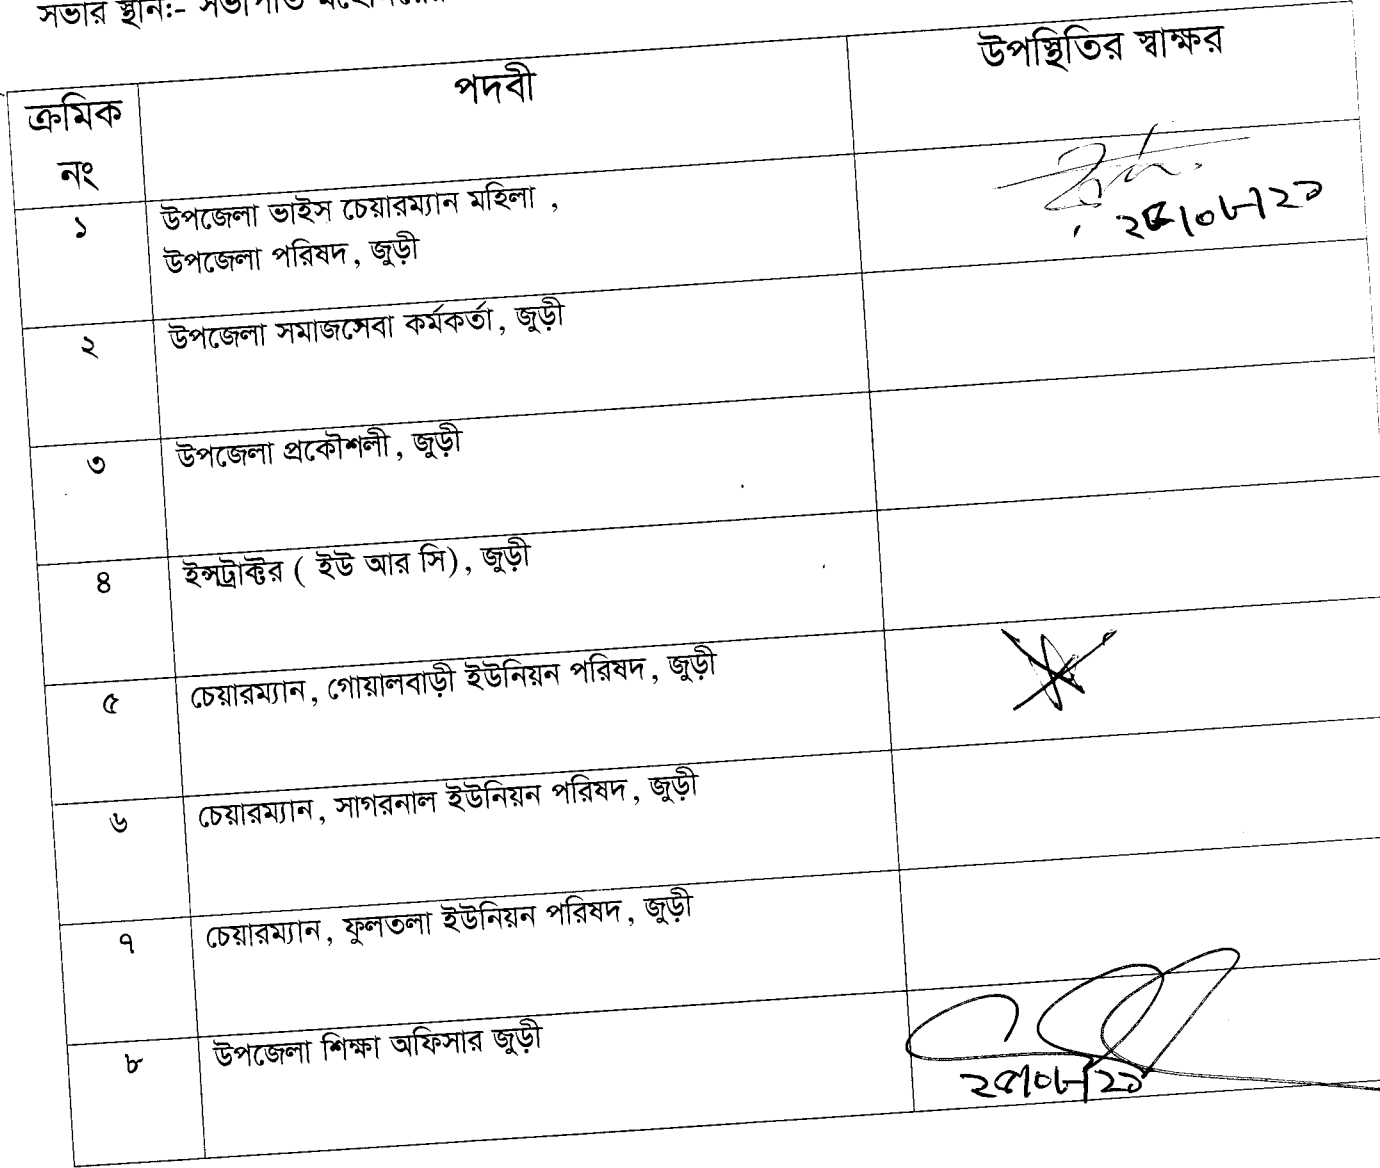 সভার স্থান:- সভাপতি
ক্রমিক নং পদবী উপস্থিতির স্বাক্ষর
১ উপজেলা ভাইস চেয়ারম্যান মহিলা ,
উপজেলা পরিষদ, জুড়ী
২ উপজেলা সমাজসেবা কর্মকর্তা, জুড়ী
৩ উপজেলা প্রকৌশলী, জুড়ী
৪ ইন্সট্রাক্টর ( ইউ আর সি), জুড়ী
৫ চেয়ারম্যান, গোয়ালবাড়ী ইউনিয়ন পরিষদ, জুড়ী
৬ চেয়ারম্যান, সাগরনাল ইউনিয়ন পরিষদ, জুড়ী
৭ চেয়ারম্যান, ফুলতলা ইউনিয়ন পরিষদ, জুড়ী
৮ উপজেলা শিক্ষা অফিসার জুড়ী